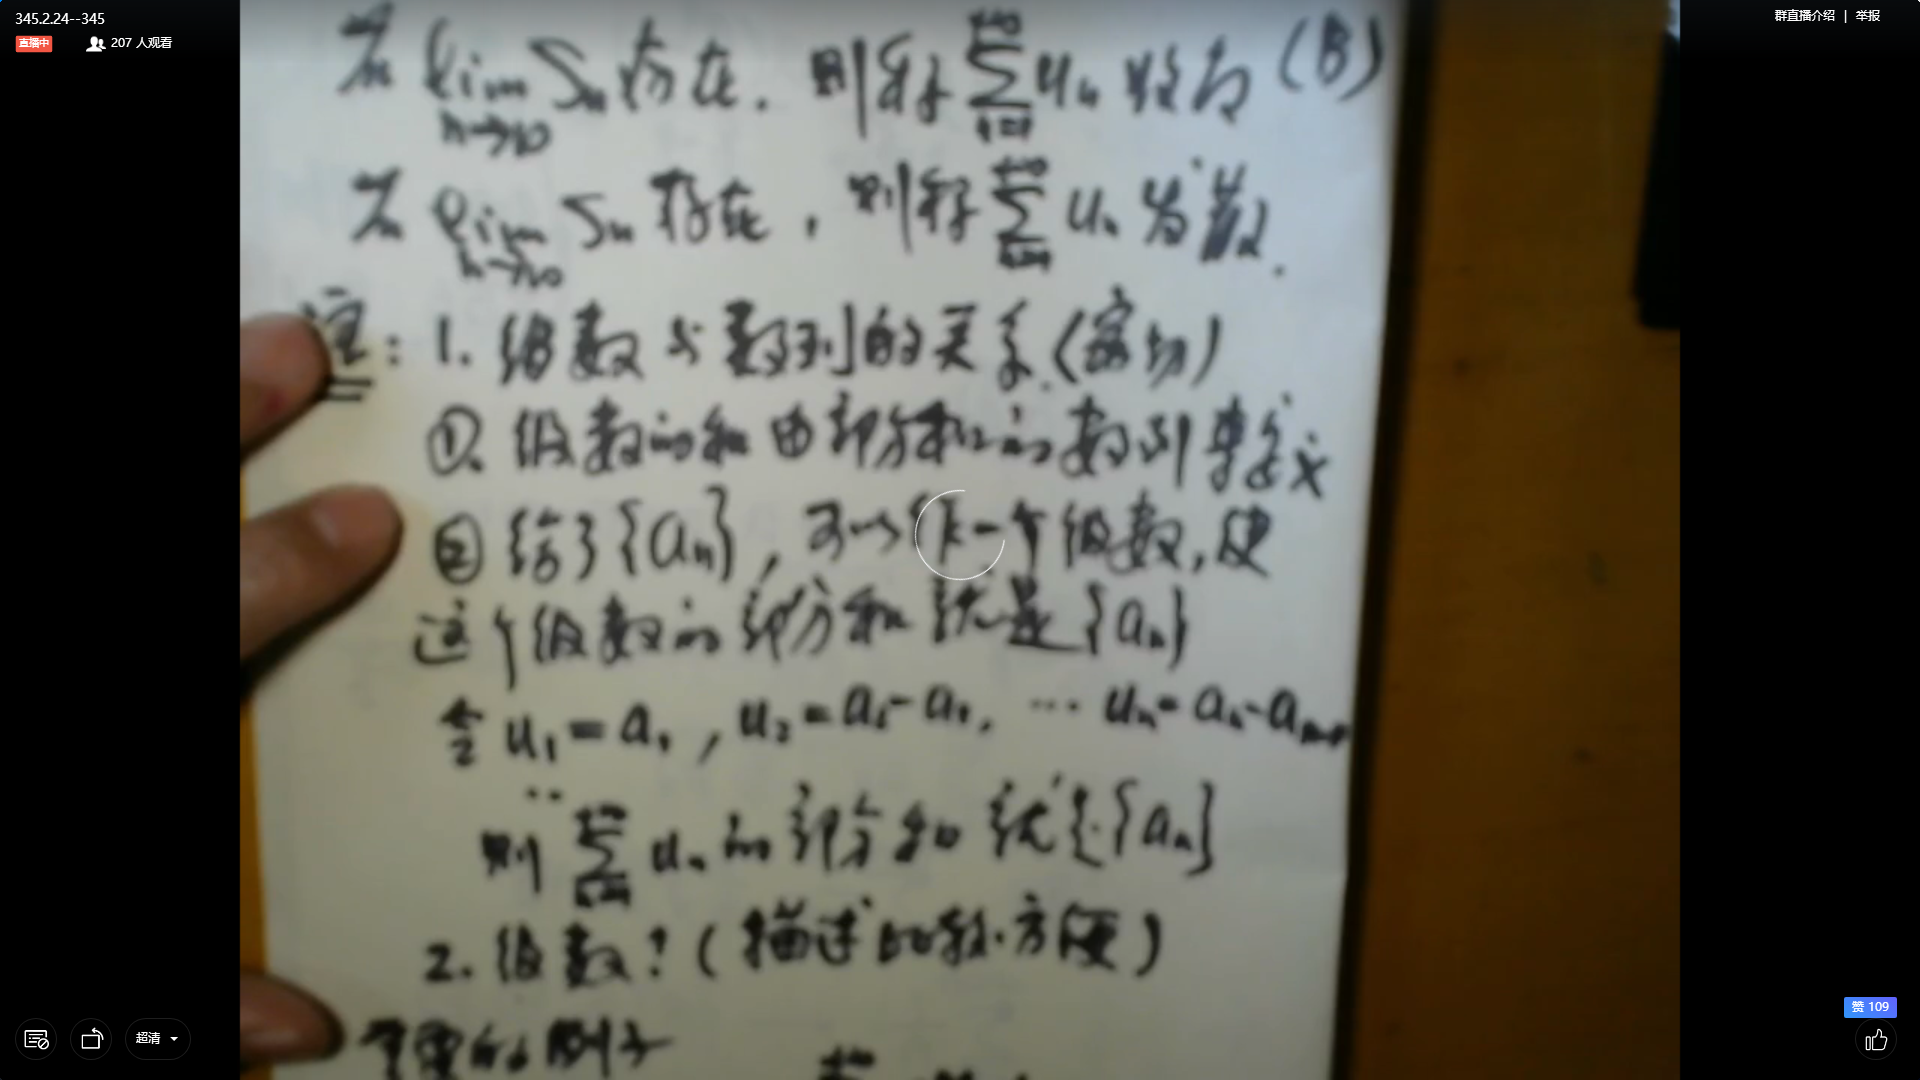 345.2.24--345
直播中 207 人观看
群直播介绍 | 举报
若 lim Sn 存在. 则称 ∑ un 收敛 (B)
n→∞
若 lim Sn 存在, 则称 ∑ un 发散.
n→∞
注: 1. 级数与数列的关系.(密切)
①. 级数的和由部分和的数列来定义
② 给了{an}, 可以作一个级数, 使
这个级数的部分和就是{an}
令 u1 = a1, u2 = a2 - a1, … un = an - an-1
则 ∑ un 的部分和就是{an}
2. 级数? (描述比较方便)
重要的例子
超清
赞 109